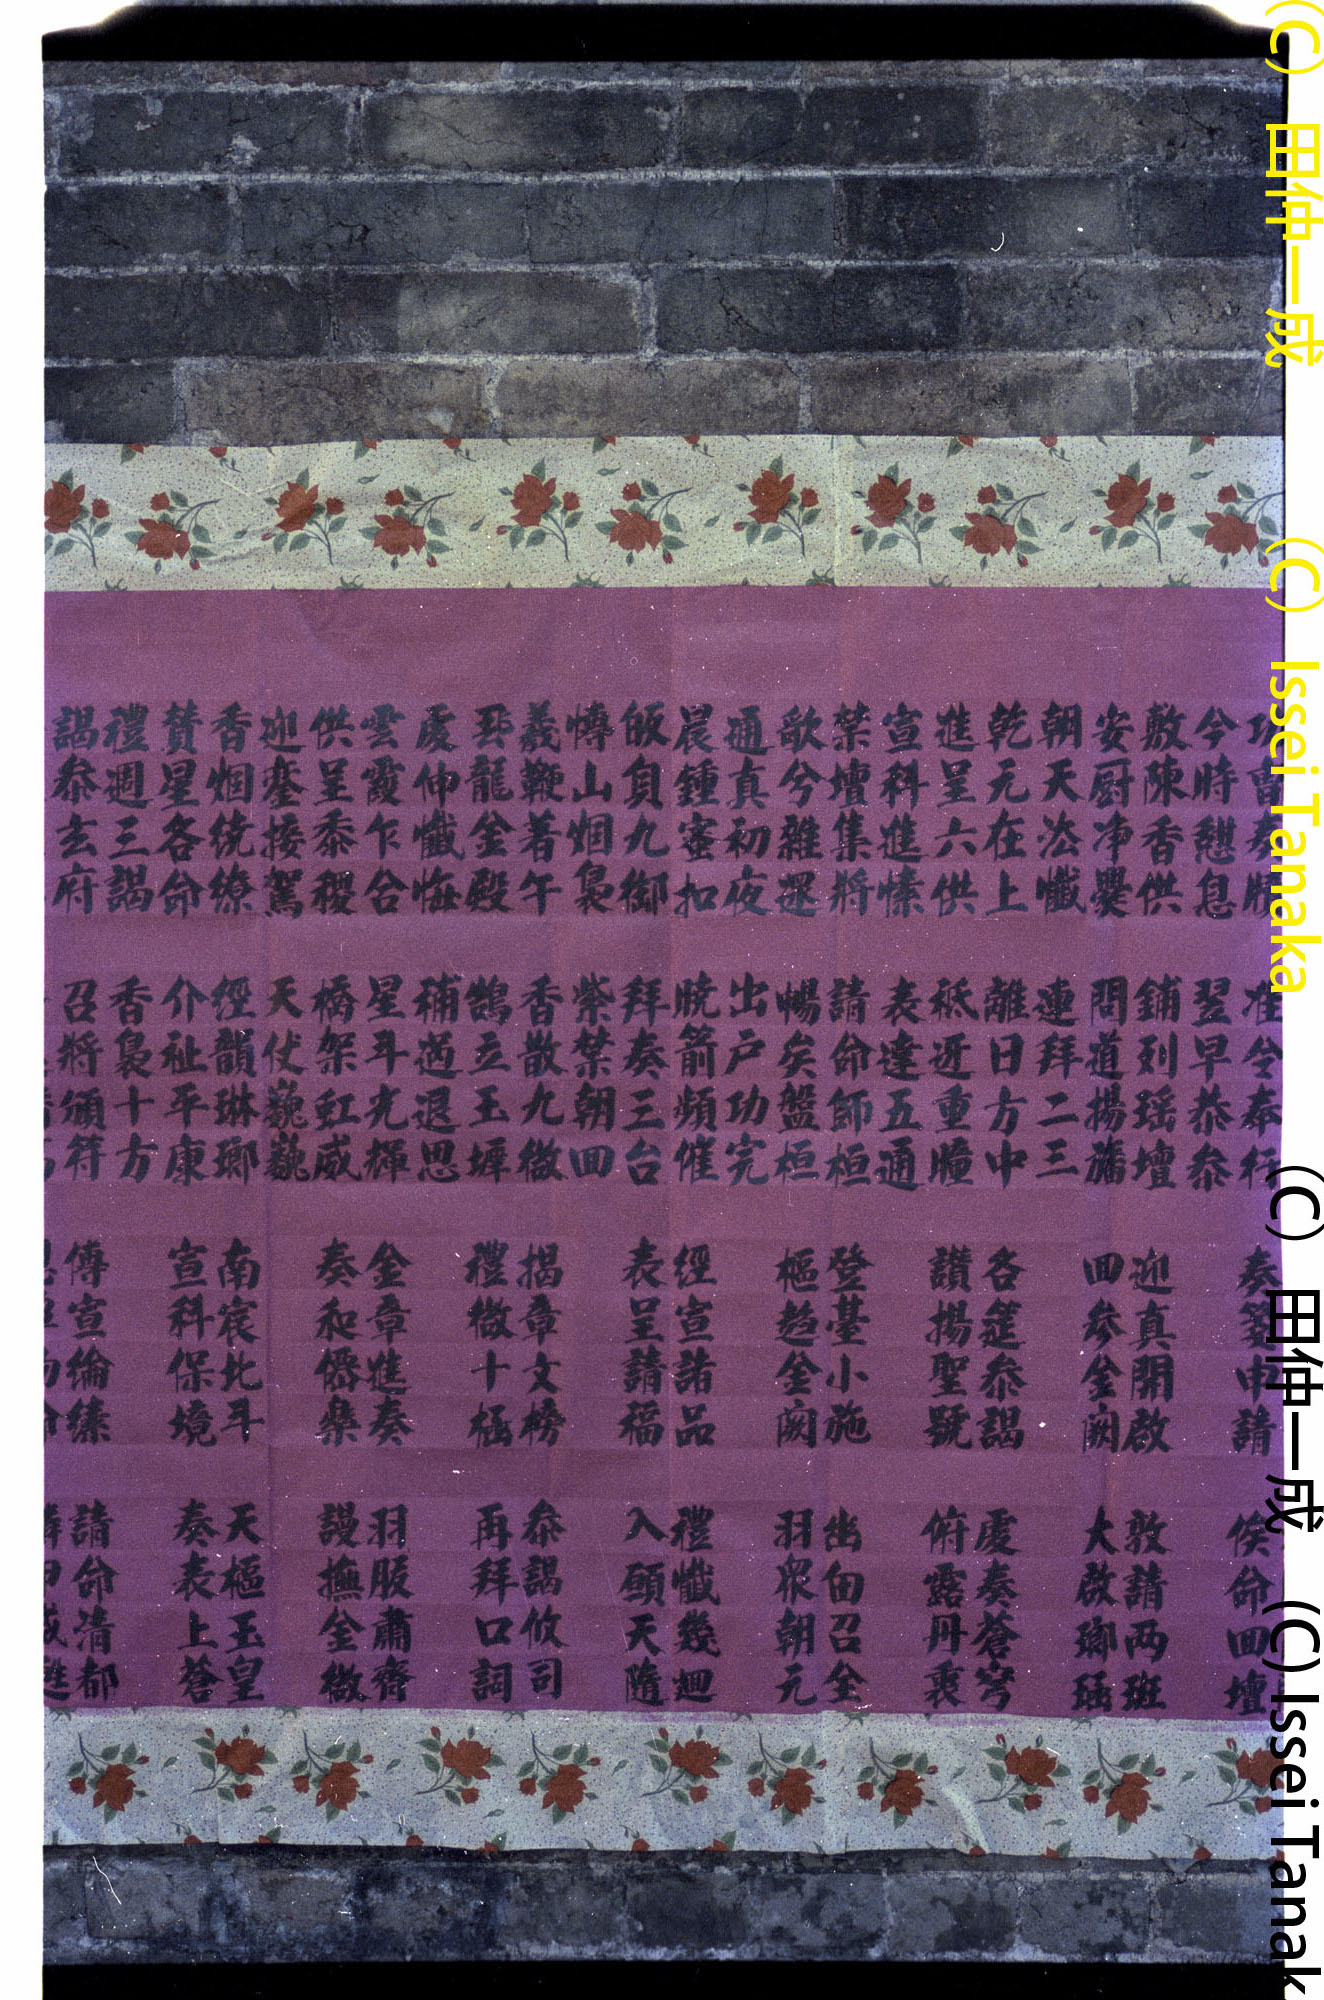 功曹奏牒 准令奉行 奏箋申請 俟命回壇
今時憇息 翌早恭叅
敷陳香供 鋪列瑶壇 迎真開啟 敦請两班
安厨净爨 問道揚旛 回參金闕 大啟瑯函
朝天法懺 連拜二三
乾元在上 離日方中 各筵叅謁 虔奏蒼穹
進呈六供 祗近重瞳 讃揚聖號 俯露丹衷
宣科進愫 表達五通
禁壇集將 請命師桓 登臺小施 幽囱召全
歆兮雜還 暢矣盤桓 樞趋金闕 羽衆朝元
通真初夜 出户功完
晨鍾蜜扣 曉箭頻催 經宣諸品 禮懺幾迴
皈負九御 拜奏三台 表呈請福 入頤天隨
慱山烟裊 紫禁朝回
義鞭着午 香散九微 揭章文榜 叅謁攸司
珏龍金殿 鵠立玉墀 禮微十極 再拜口詞
虔伸懺悔 補過退思
雲霞乍合 星斗光輝 金章進奏 羽服肅齊
供呈黍稷 橋架虹威 奏和儕樂 謾撫金徽
迎鑾接駕 天仗巍巍
香烟统繚 經韻琳瑯 南宸北斗 天樞玉皇
賛星各命 介祉平康 宣科保境 奏表上蒼
禮週三謁 香裊十方
謁叅玄府 召將頒符 傳宣綸綍 請命清都
(C) 田仲一成 (C) Issei Tanaka
(C) 田仲一成 (C) Issei Tanak